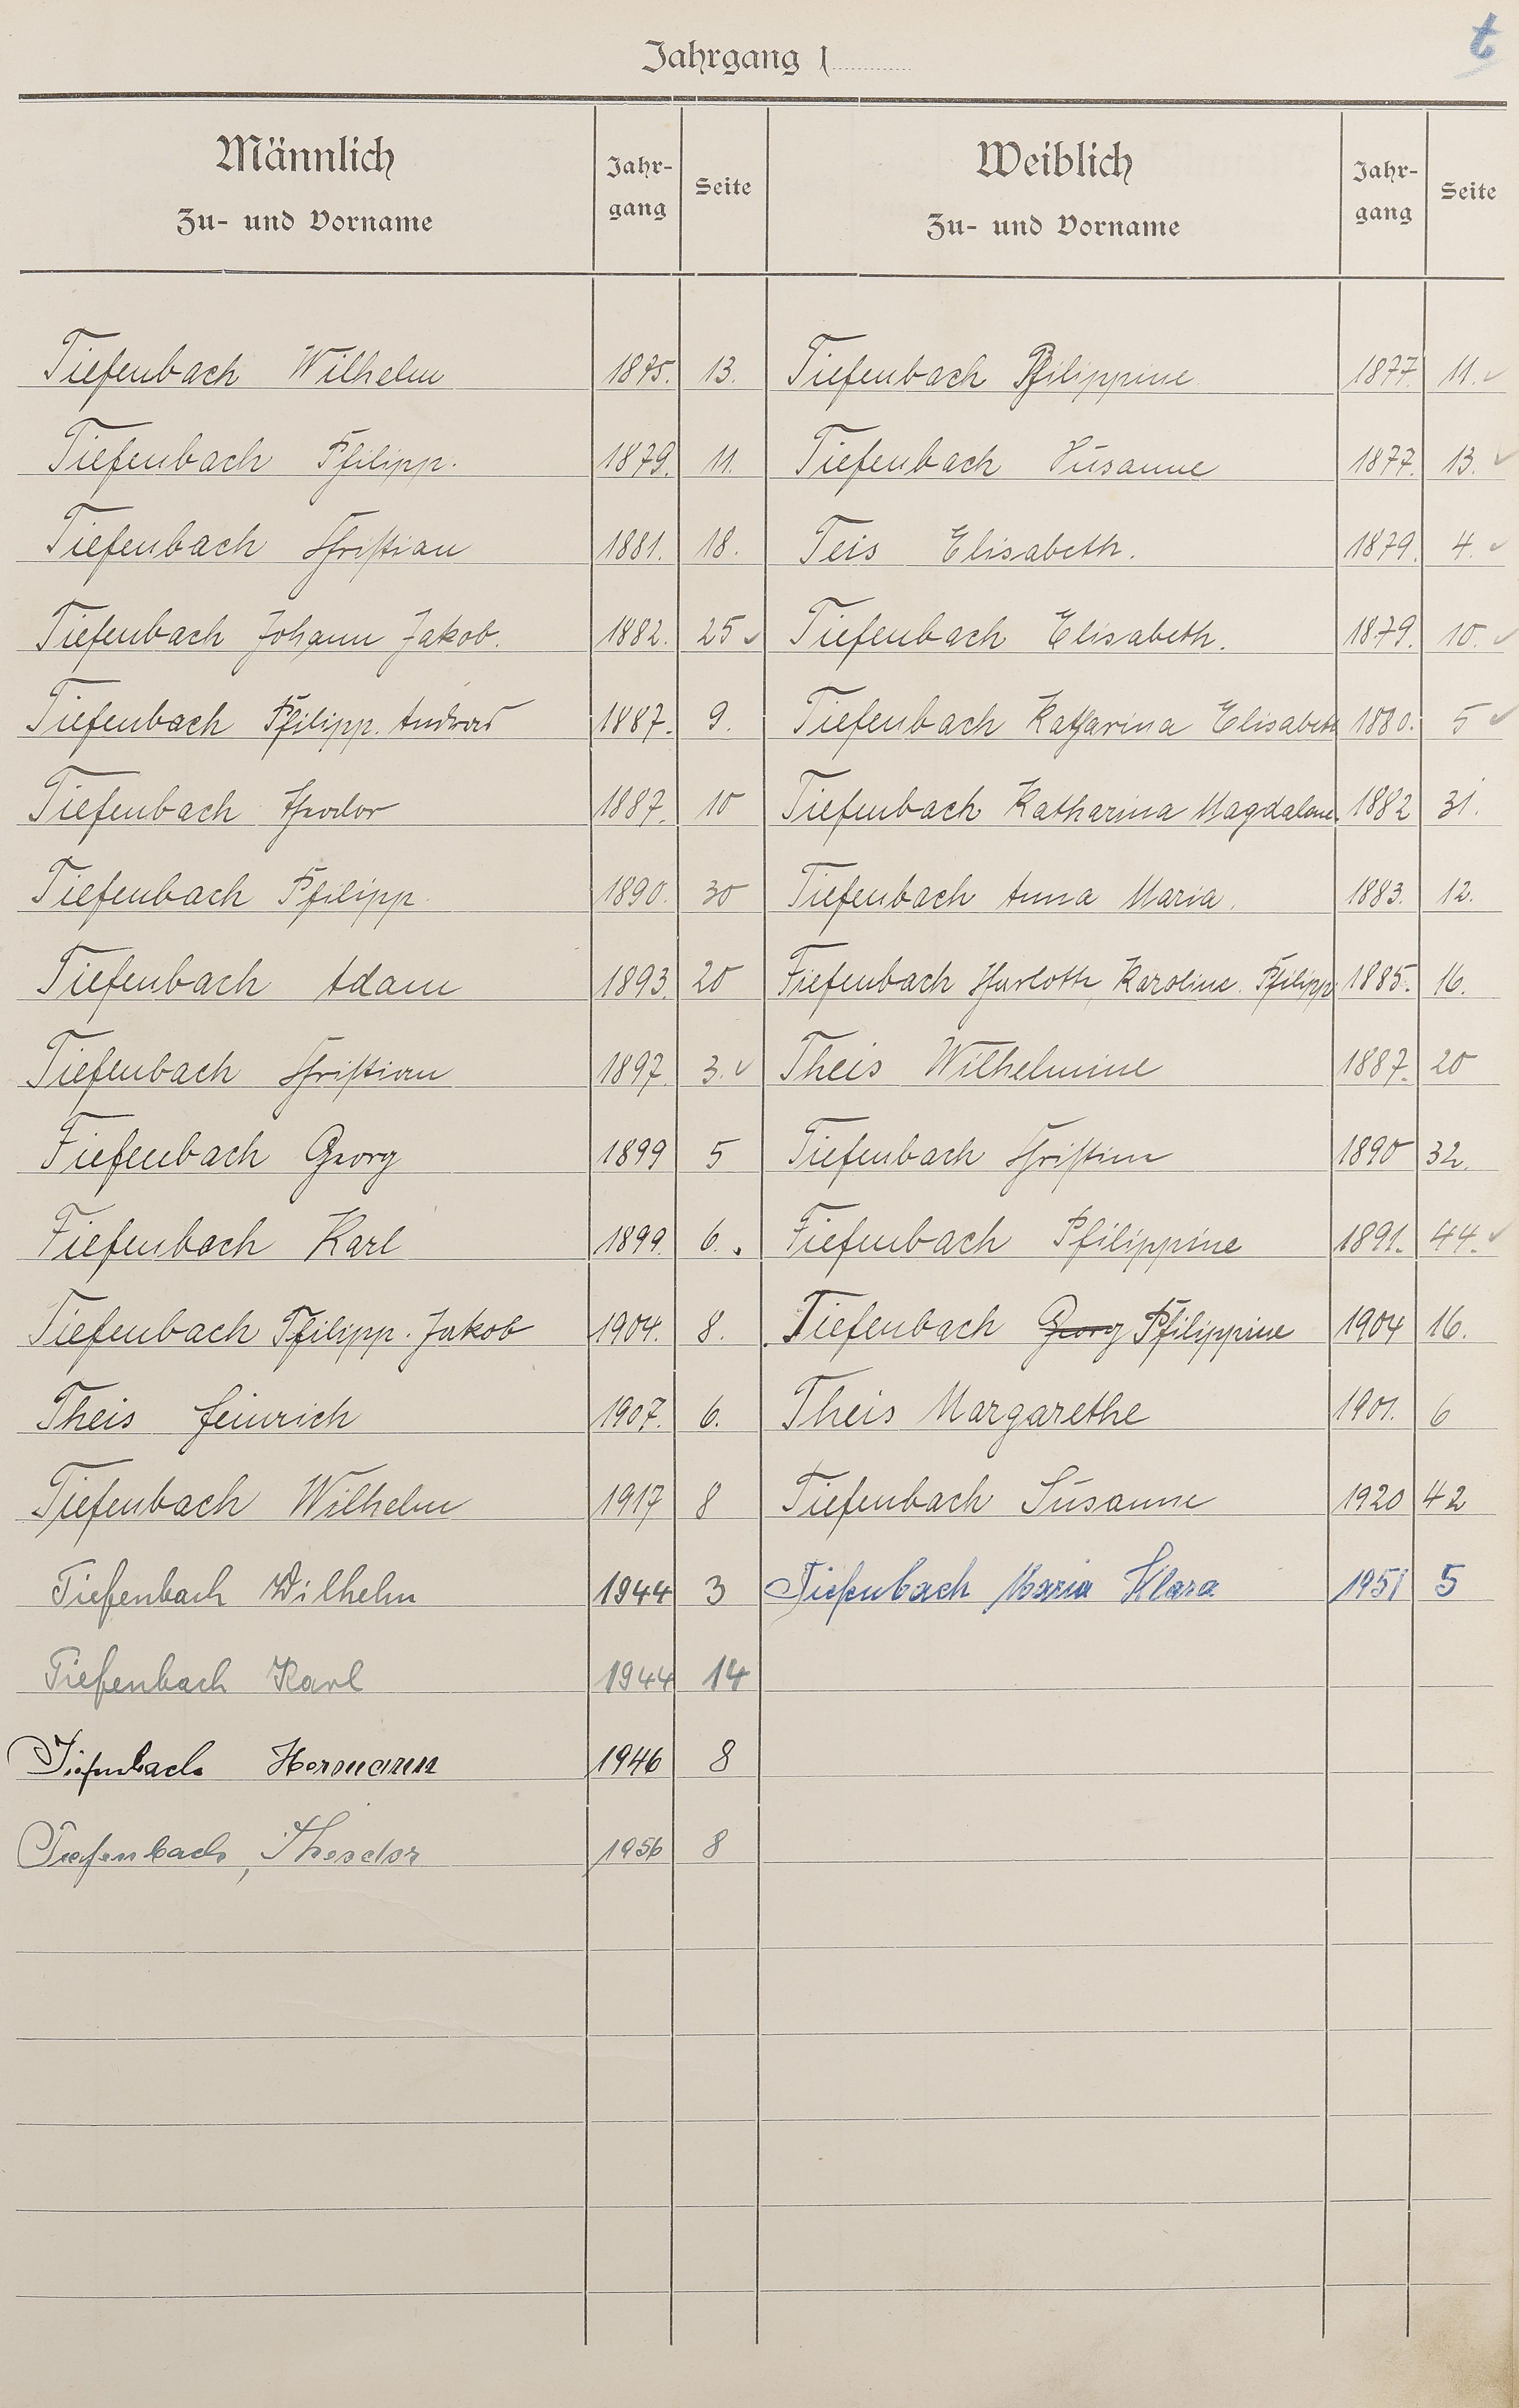 t
Jahrgang 1
Männlich
Zu- und Vorname
Jahr-
gang
Seite
Weiblich
Zu- und Vorname
Jahr-
gang
Seite
Tiefenbach Wilhelm 1875. 13. Tiefenbach Philippine 1877. 11. ✓
Tiefenbach Philipp. 1879. 11. Tiefenbach Susanne 1877. 13. ✓
Tiefenbach Christian 1881. 18. Teis Elisabeth. 1879. 4. ✓
Tiefenbach Johann Jakob. 1882. 25 ✓ Tiefenbach Elisabeth. 1879. 10. ✓
Tiefenbach Philipp. Andreas 1887. 9. Tiefenbach Katharina Elisabeth 1880. 5 ✓
Tiefenbach Theodor 1887. 10 Tiefenbach Katharina Magdalene 1882 31.
Tiefenbach Philipp. 1890. 30 Tiefenbach Anna Maria. 1883. 12.
Tiefenbach Adam 1893. 20 Tiefenbach Charlotte Karoline Philipp. 1885. 16.
Tiefenbach Christian 1897. 3. ✓ Theis Wilhelmine 1887. 20
Tiefenbach Georg 1899 5 Tiefenbach Christine 1890 32.
Tiefenbach Karl 1899. 6. Tiefenbach Philippine 1891. 44. ✓
Tiefenbach Philipp. Jakob 1904. 8. Tiefenbach Georg Philippine 1904 16.
Theis Heinrich 1907. 6. Theis Margarethe 1901. 6
Tiefenbach Wilhelm 1917 8 Tiefenbach Susanne 1920 42
Tiefenbach Wilhelm 1944 3 Tiefenbach Maria Klara 1951 5
Tiefenbach Karl 1944 14
Tiefenbach Hermann 1946 8
Tiefenbach, Theodor 1956 8